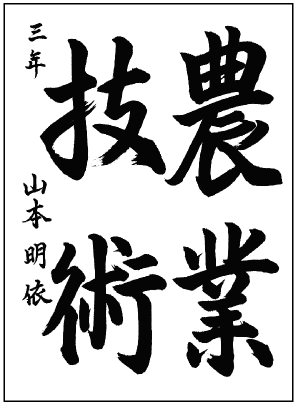 農業
技術
三年 山本明依